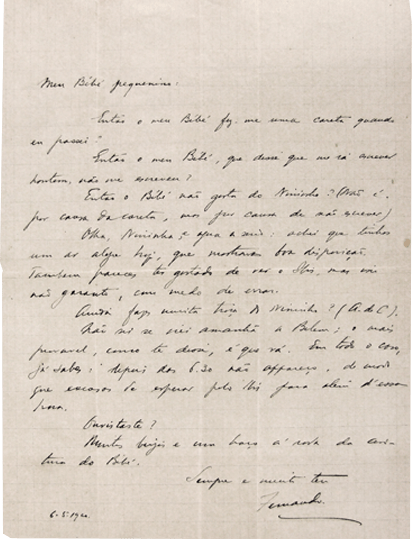 Meu Bébé pequenino:
Então o meu Bébé fez-me uma careta quando
eu passei?
Então o meu Bébé, que disse que me ia escrever
hontem, não me escreveu?
Então o Bébé não gosta do Nininho? (Não é
por causa da careta, mas por causa de não escrever)
Olha, Nininha; e agora a sério: achei que tinhas
um ar alegre hoje, que mostravas boa disposição.
Também pareces ter gostado de ver o Ibis, mas isso
não garanto, com medo de errar.
Ainda fazes muita troça do Nininho? (A. de C.).
Não sei se irei amanhã a Belem; o mais
provavel, como te disse, é que vá. Em todo o caso,
já sabes: depois das 6.30 não appareço, de modo
que escusas de esperar pelo Ibis para além d'essa
hora.
Ouvistaste?
Muitos beijos e um braço á volta da cin-
tura do Bébé.
Sempre e muito teu
Fernando
6-5-1920.